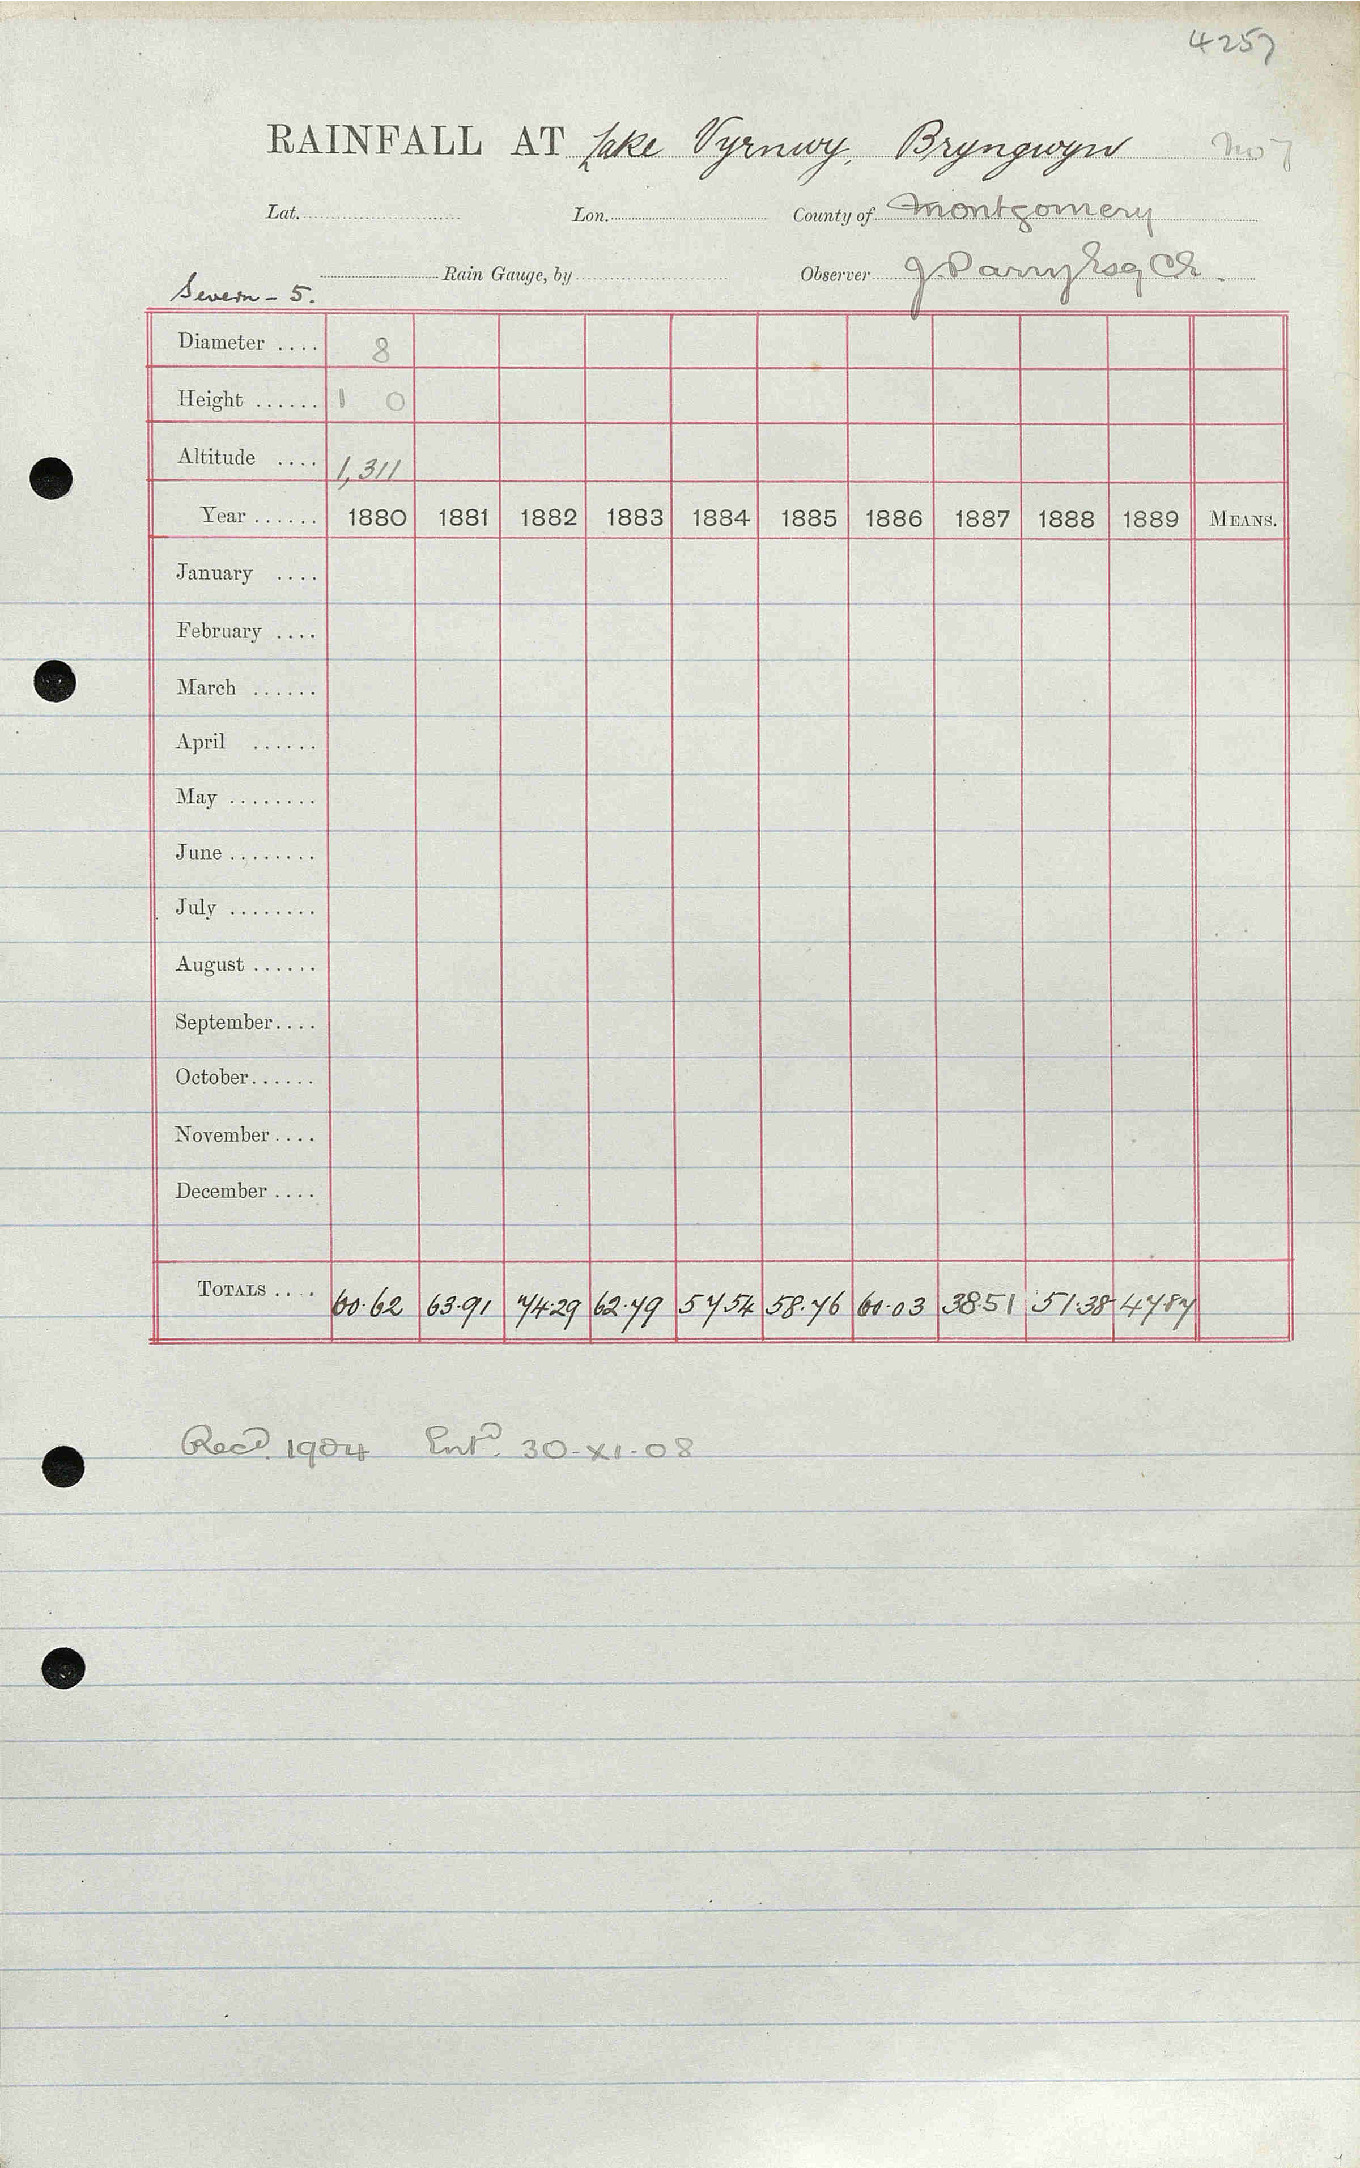 4257
RAINFALL AT Lake Vyrnwy, Bryngwyn No 7
Lat. Lon. County of Montgomery
Rain Gauge, by Observer J Parry Esq CE
Severn - 5.
Diameter .... 8
Height ...... 1 0
Altitude .... 1,311
Year ...... 1880 1881 1882 1883 1884 1885 1886 1887 1888 1889 MEANS.
January ....
February ....
March ......
April ......
May ........
June ........
July ........
August ......
September ....
October ......
November ....
December ....
TOTALS .... 60.62 63.91 74.29 62.79 57.54 58.76 60.03 38.51 51.38 47.87
Recd. 1904 Entd. 30-XI-08